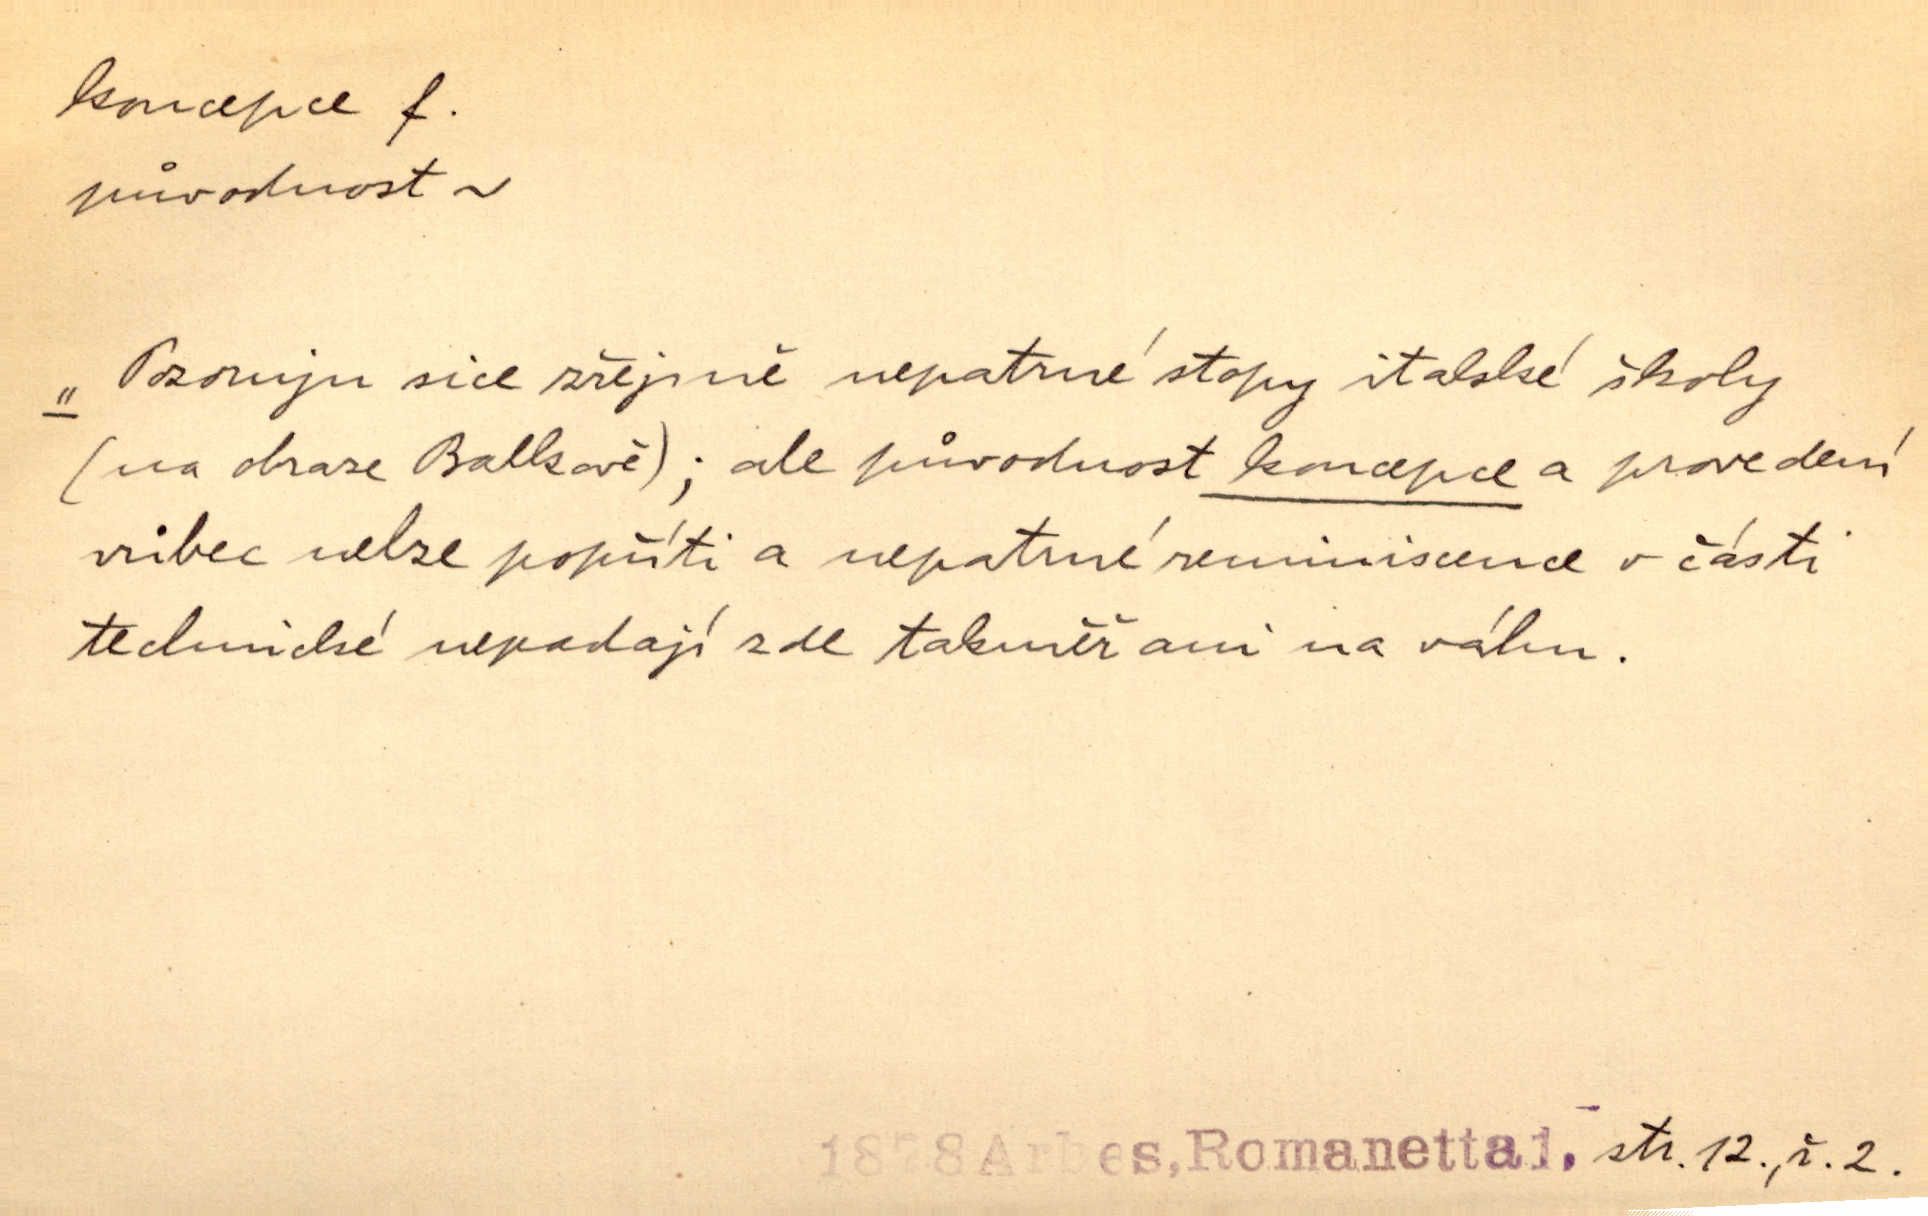 koncepce f.
původnost ~
„ Pozoruju sice zřejmě nepatrné stopy italské školy
(na obraze Balkově); ale původnost koncepce a provedení
vůbec nelze popříti a nepatrné reminiscence v části
technické nepadají zde takměř ani na váhu.
1878 Arbes, Romanetta 1, str. 12., ř. 2.